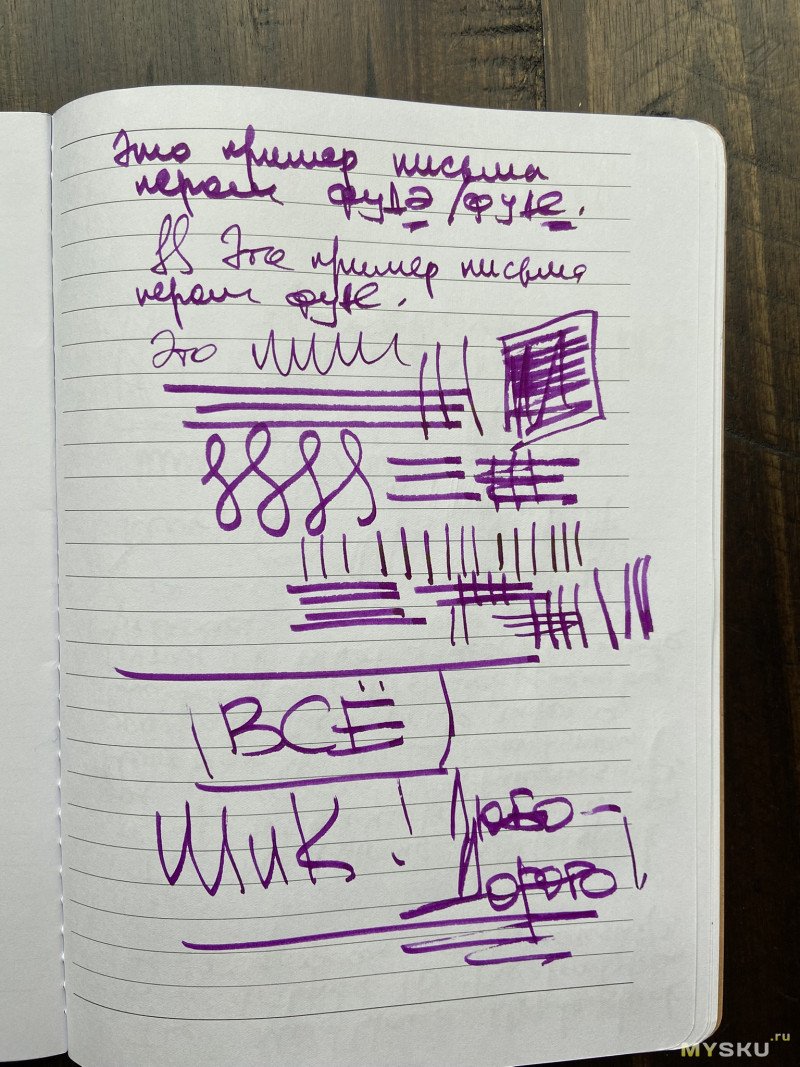 Это пример письма
пером фудэ/фуде.
Это пример письма
пером фуде.
Это
ВСЁ
ШиК!
Любо -
дорого
MYSKU.ru